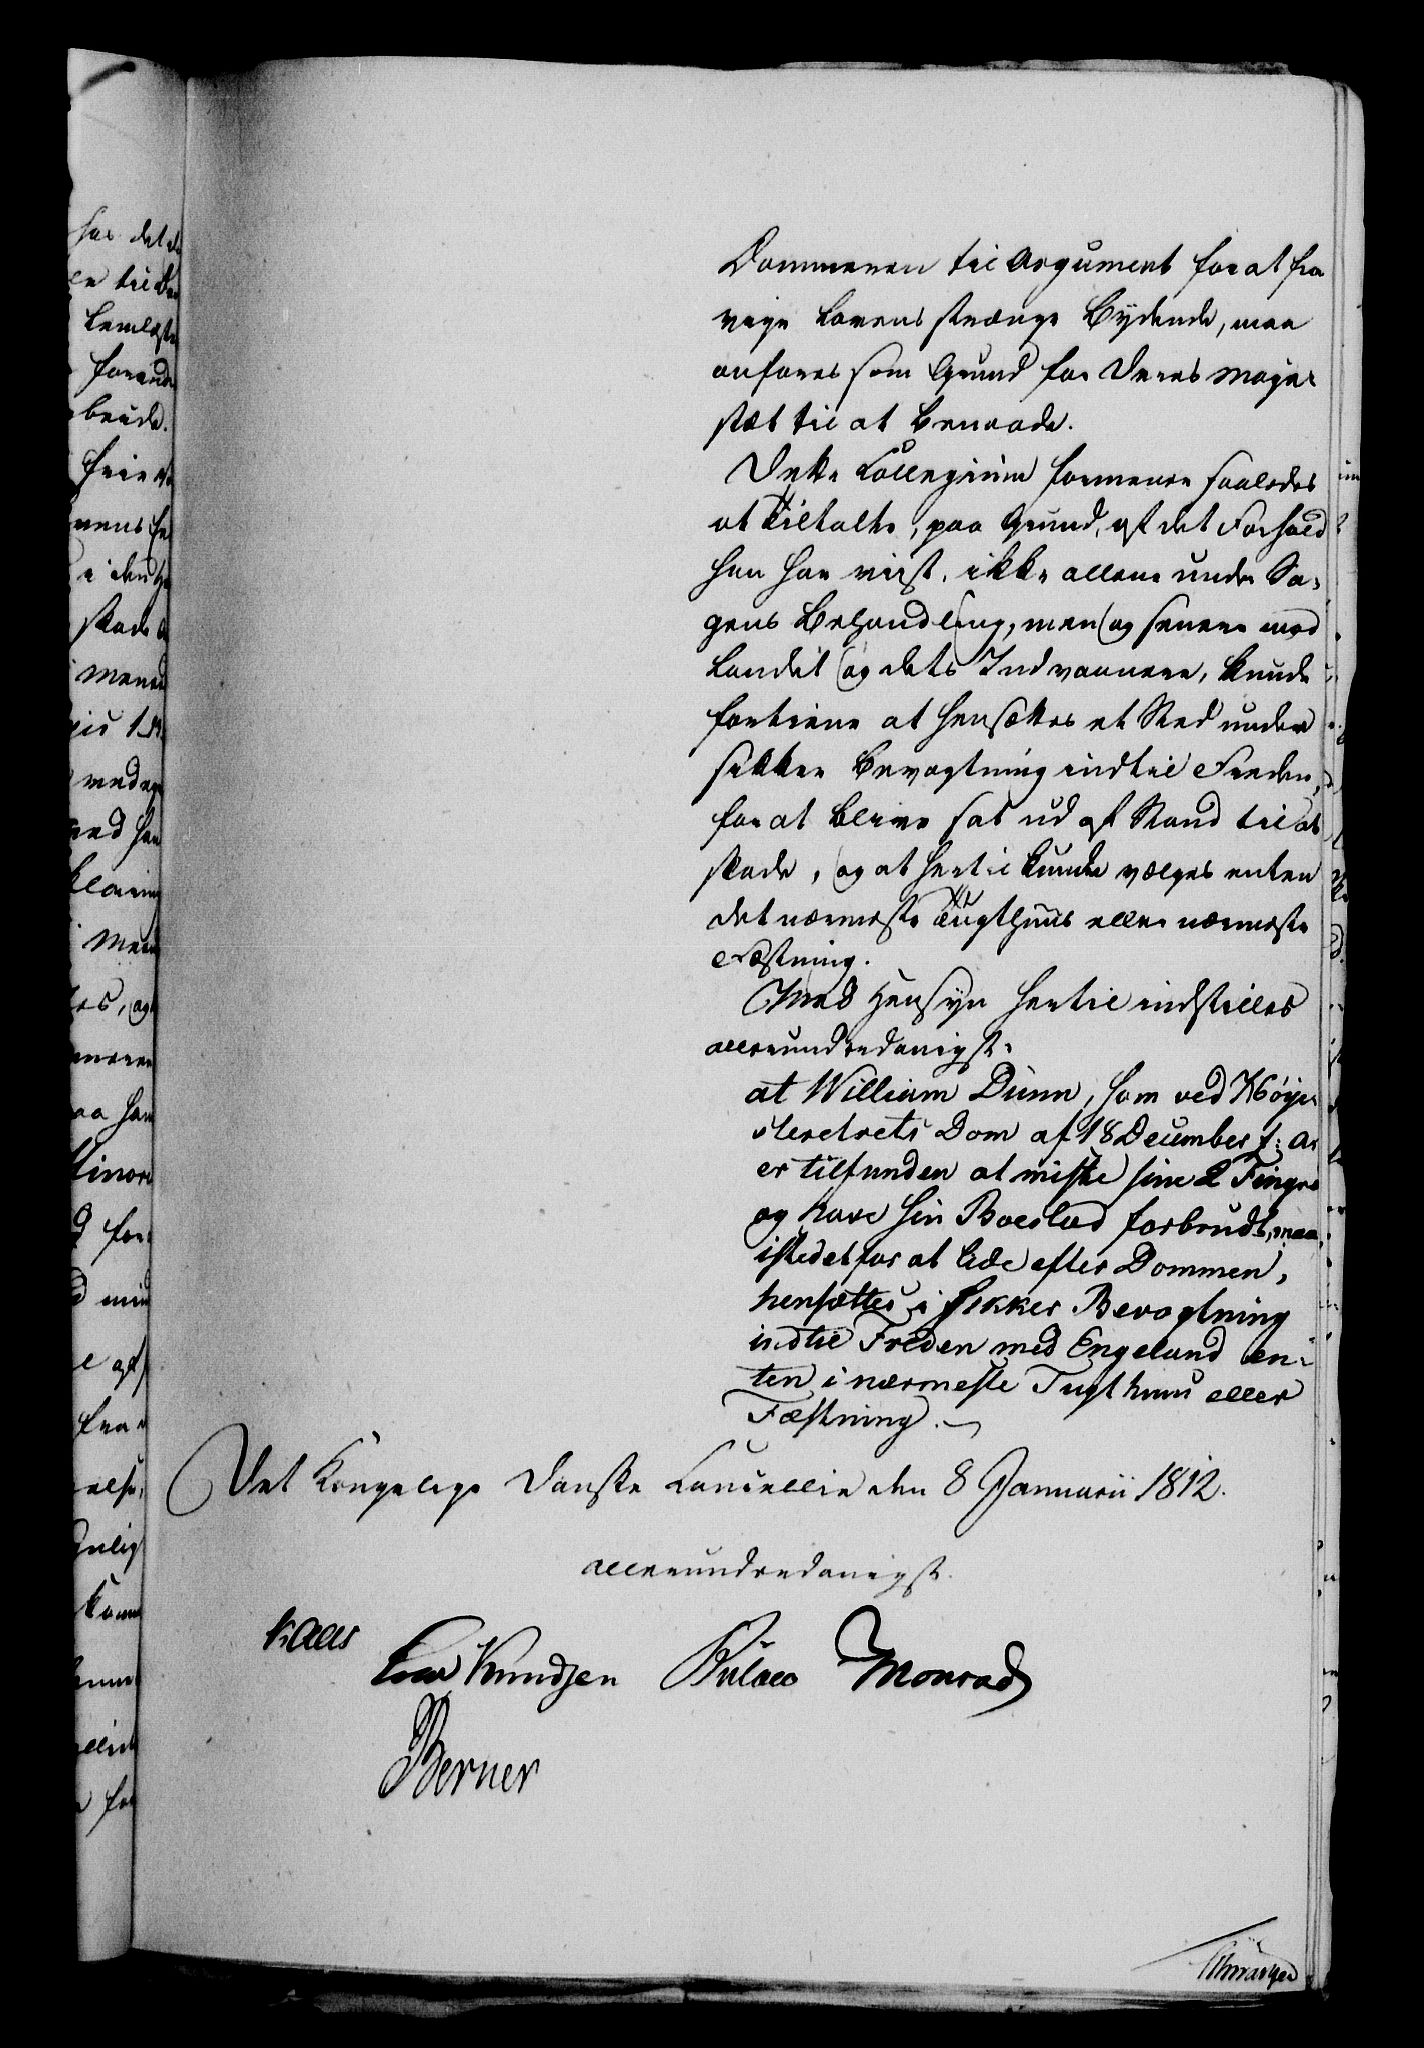 Dommeren til Argument for at fra
vige Lovens strænge Bydende, maa
anføres som Grund for Deres Maje-
stæt til at benaade.
Dette Collegium formener saaledes
at Tiltalte, paa Grund af det Forhold
han har viist, ikke allene under Sa-
gens Behandling, men og senere mod
Landet og dets Indvaanere, kunde
fortiene at hensættes et Sted under
sikker Bevogtning indtil Freden,
for at blive sat ud af Stand til at
skade, og at hertil kunde vælges enten
det nærmeste Tugthuus eller nærmeste
Fæstning.
Med Hensyn hertil indstilles
allerunderdanigst:
at William Dunn, som ved Høije-
steretrets Dom af 18 December f: A:
er tilfunden at miste sine 2 Fingre
og have sin Boeslod forbrudt, maa,
istedetfor at lide efter Dommen,
hensættes i sikker Bevogtning
indtil Freden med Engeland en-
ten i nærmeste Tugthuus eller
Fæstning.
Det Kongelige Danske Cancellie den 8 Januarii 1812.
allerunderdanigst.
Kaas
Knudsen Bülow Monrad
Berner